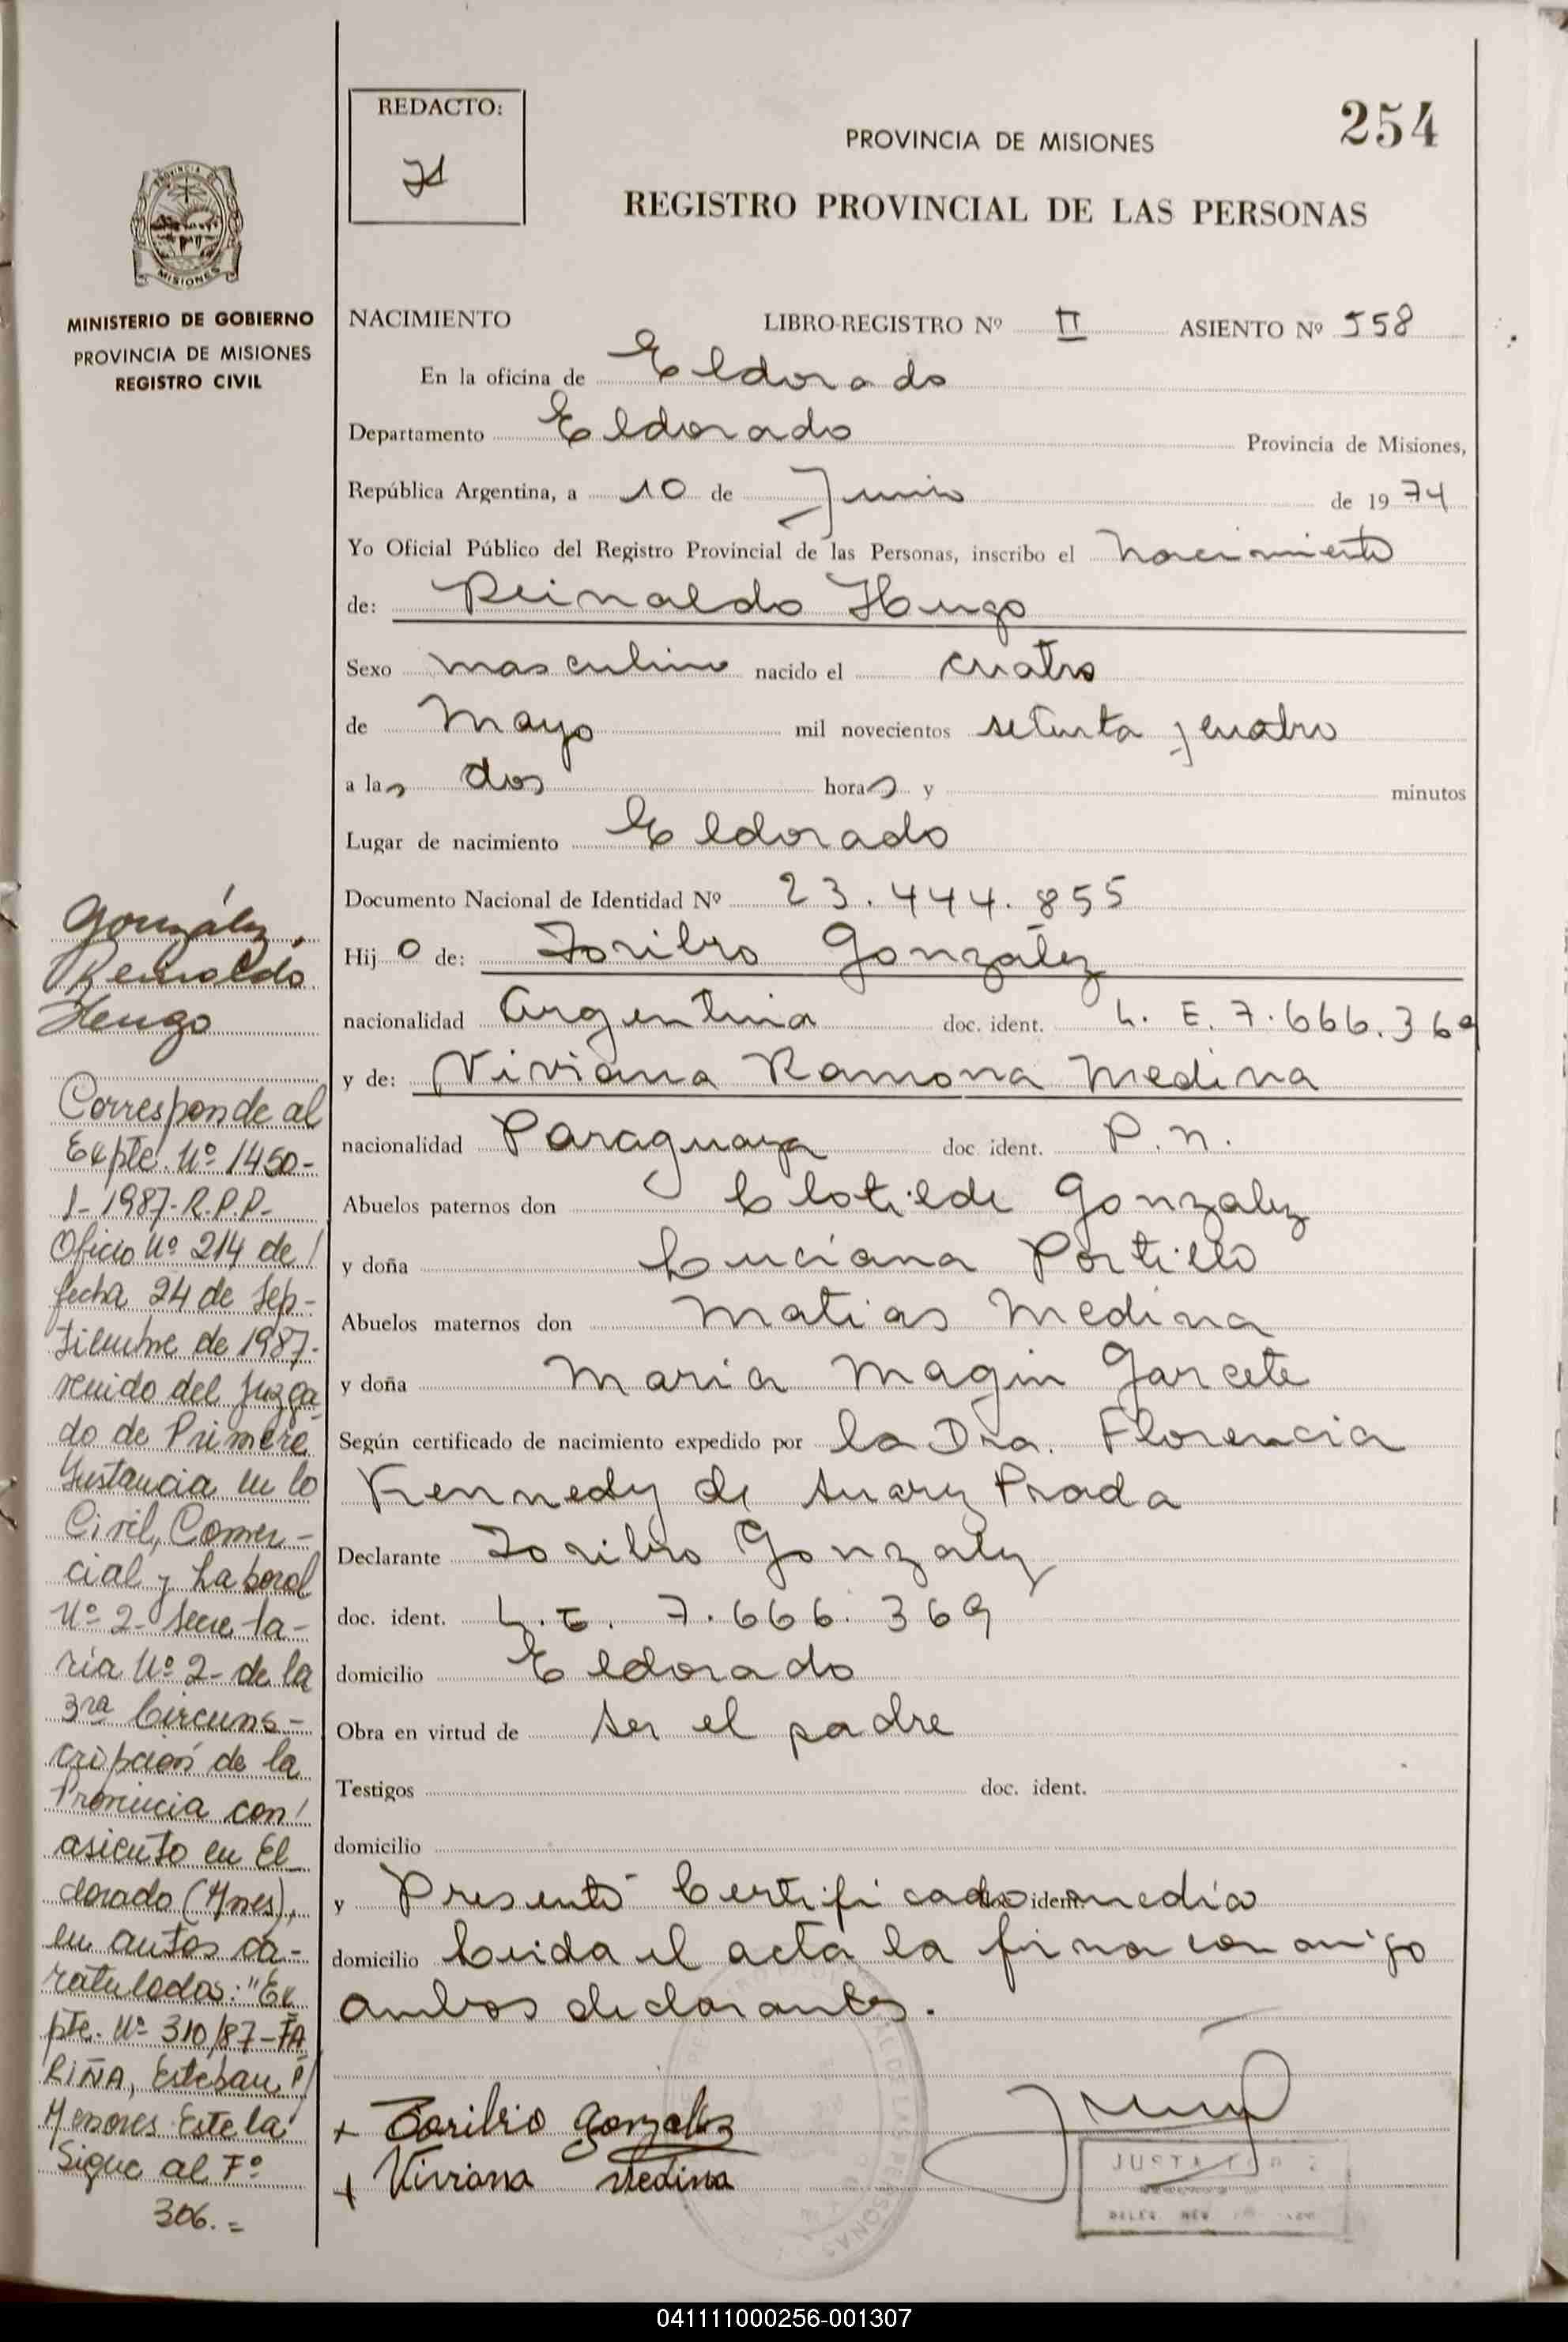 254
REDACTO:
PROVINCIA DE MISIONES
REGISTRO PROVINCIAL DE LAS PERSONAS
MISIONES
MINISTERIO DE GOBIERNO
PROVINCIA DE MISIONES
REGISTRO CIVIL
NACIMIENTO LIBRO-REGISTRO Nº II ASIENTO Nº 558
En la oficina de Eldorado
Departamento Eldorado Provincia de Misiones,
República Argentina, a 10 de Junio de 1974
Yo Oficial Público del Registro Provincial de las Personas, inscribo el nacimiento
de: Reinaldo Hugo
Sexo masculino nacido el cuatro
de Mayo mil novecientos setenta y cuatro
a las dos horas y minutos
Lugar de nacimiento Eldorado
Documento Nacional de Identidad Nº 23.444.855
Hijo de: Toribio González
nacionalidad Argentina doc. ident. L. E. 7.666.369
y de: Viviana Ramona Medina
nacionalidad Paraguaya doc. ident. P.n.
Abuelos paternos don Clotilde Gonzalez
y doña Luciana Portillo
Abuelos maternos don Matias Medina
y doña Maria Magin Garcete
Según certificado de nacimiento expedido por la Dra. Florencia
Kennedy de Prada
Declarante Toribio Gonzalez
doc. ident. L.E. 7.666.369
domicilio Eldorado
Obra en virtud de ser el padre
Testigos doc. ident.
domicilio
y Presentó Certificado doc. ident. medico
domicilio Leida el acta la firman conmigo
ambos declarantes.
+ Toribio Gonzalez
+ Viviana Medina
González,
Reinaldo
Hugo
Corresponde al
Expte. Nº 1450-
1-1987-R.P.P.-
Oficio Nº 214 de/
fecha 24 de Sep-
tiembre de 1987-
venido del Juzga
do de Primera
Instancia en lo
Civil, Comer-
cial y Laboral
Nº 2- Secreta-
ria Nº 2- de la
3ra Circuns-
cripción de la
Provincia con/
asiento en El-
dorado (Mnes),
en autos ca-
ratulados: "Ex
pte. Nº 310/87-FA
RIÑA, Esteban P/
Menores Estela
Sigue al Fº
306.=
041111000256-001307